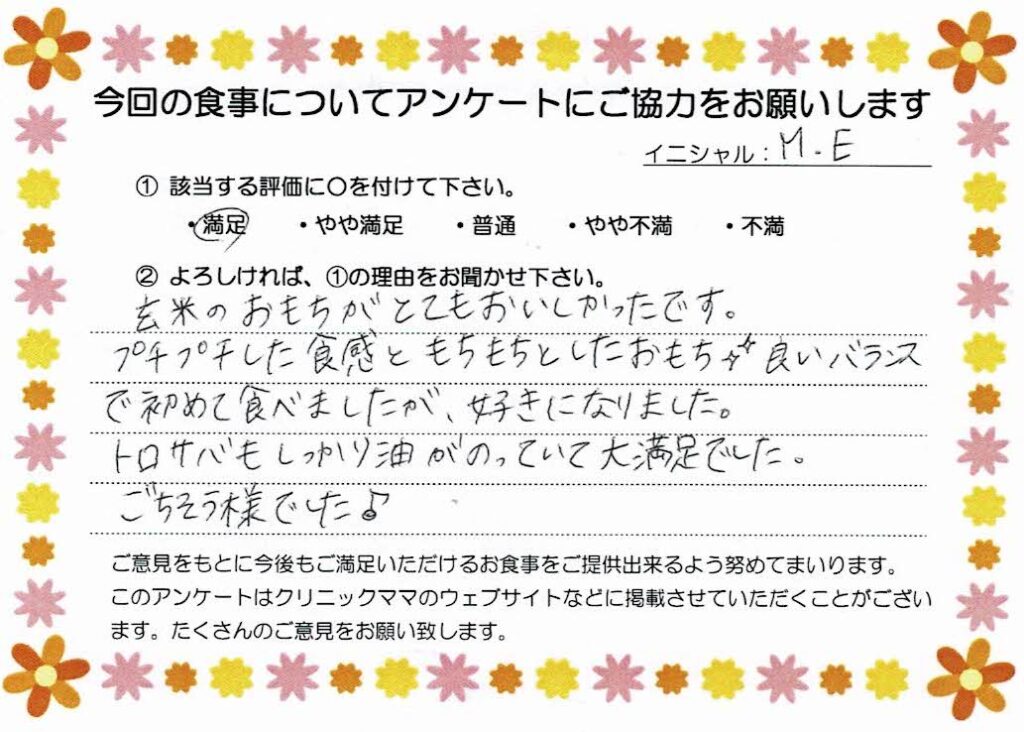 今回の食事についてアンケートにご協力をお願いします
イニシャル：M.E
① 該当する評価に○を付けて下さい。
・満足 ・やや満足 ・普通 ・やや不満 ・不満
② よろしければ、①の理由をお聞かせ下さい。
玄米のおもちがとてもおいしかったです。
プチプチした食感ともちもちとしたおもち 良いバランス
で初めて食べましたが、好きになりました。
トロサバもしっかり油がのっていて大満足でした。
ごちそう様でした♪
ご意見をもとに今後もご満足いただけるお食事をご提供出来るよう努めてまいります。
このアンケートはクリニックママのウェブサイトなどに掲載させていただくことがござい
ます。たくさんのご意見をお願い致します。